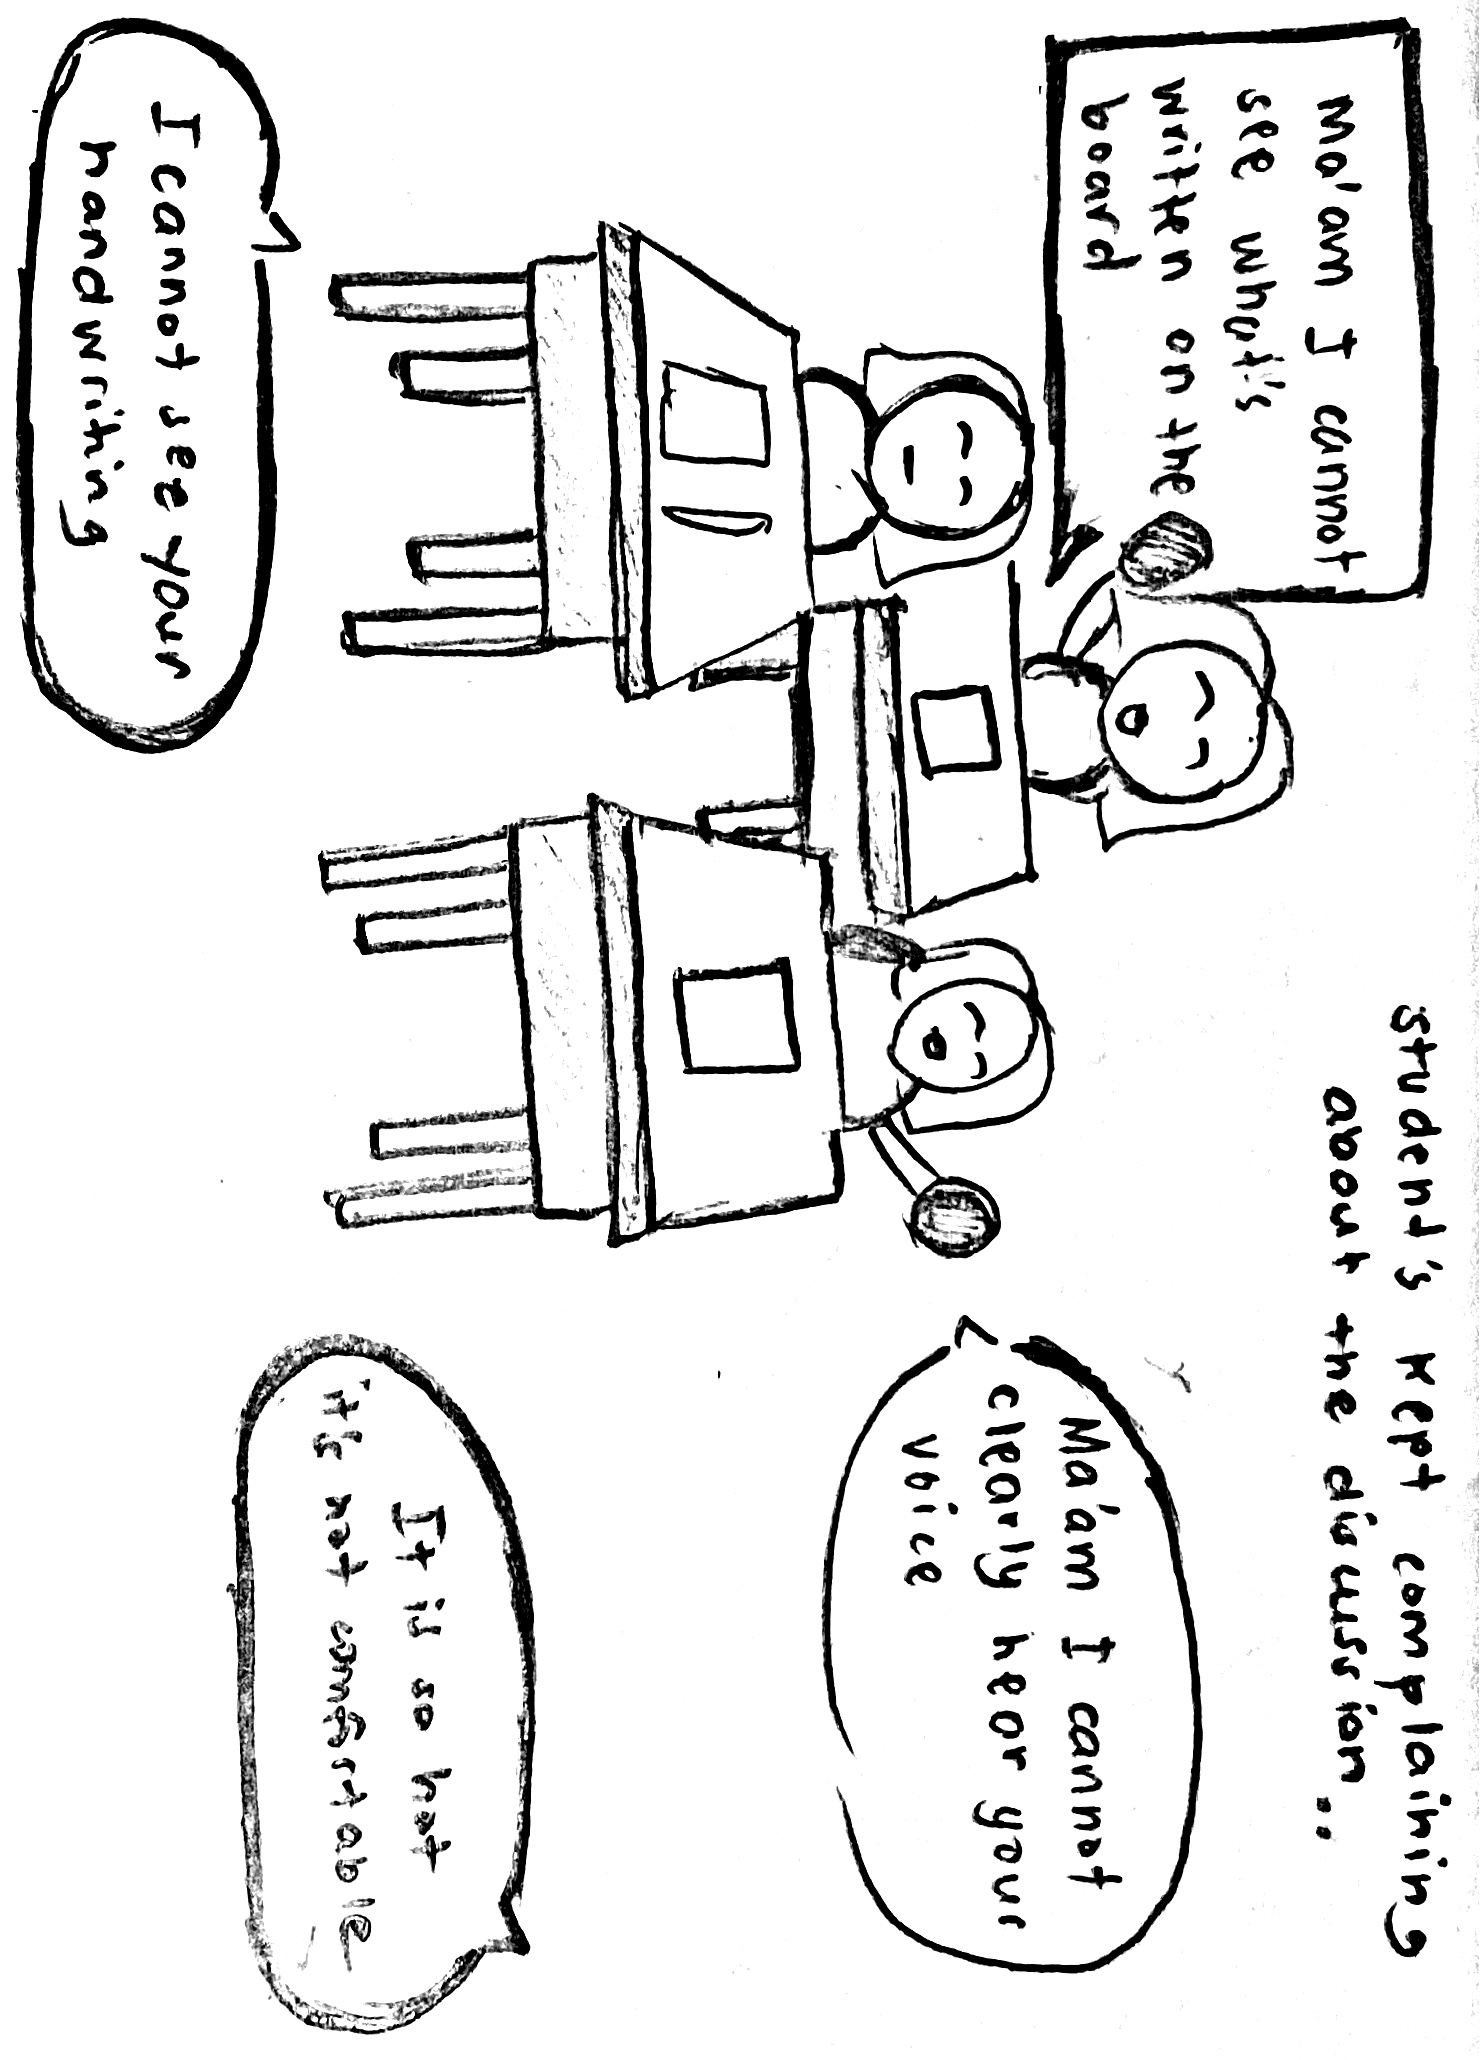 student's kept complaining
about the discussion..
Ma'am I cannot
see what's
written on the
board
Ma'am I cannot
clearly hear your
voice
It is so hot
it's not comfortable
I cannot see your
handwriting